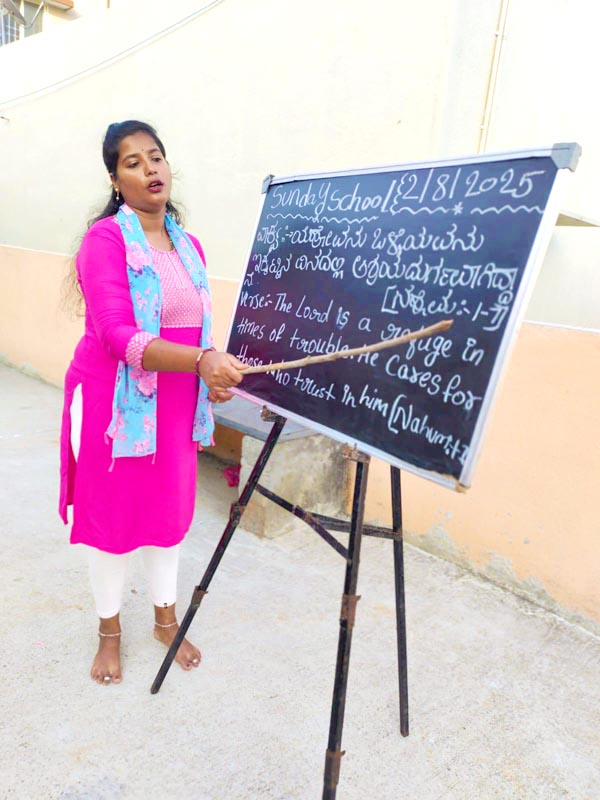 Sunday School {2/8/2025
ವಾಕ್ಯ:-ಯೆಹೋವನು ಒಳ್ಳೆಯವನು
ಇಕ್ಕಟ್ಟಿನ ದಿನದಲ್ಲಿ ಆಶ್ರಯದುರ್ಗವಾಗಿದ್ದಾ
ನೆ. [ನಹೂಮ:-1-7]
Verse:- The Lord is a refuge in
times of trouble. He Cares for
those who trust in him [Nahum:1-7